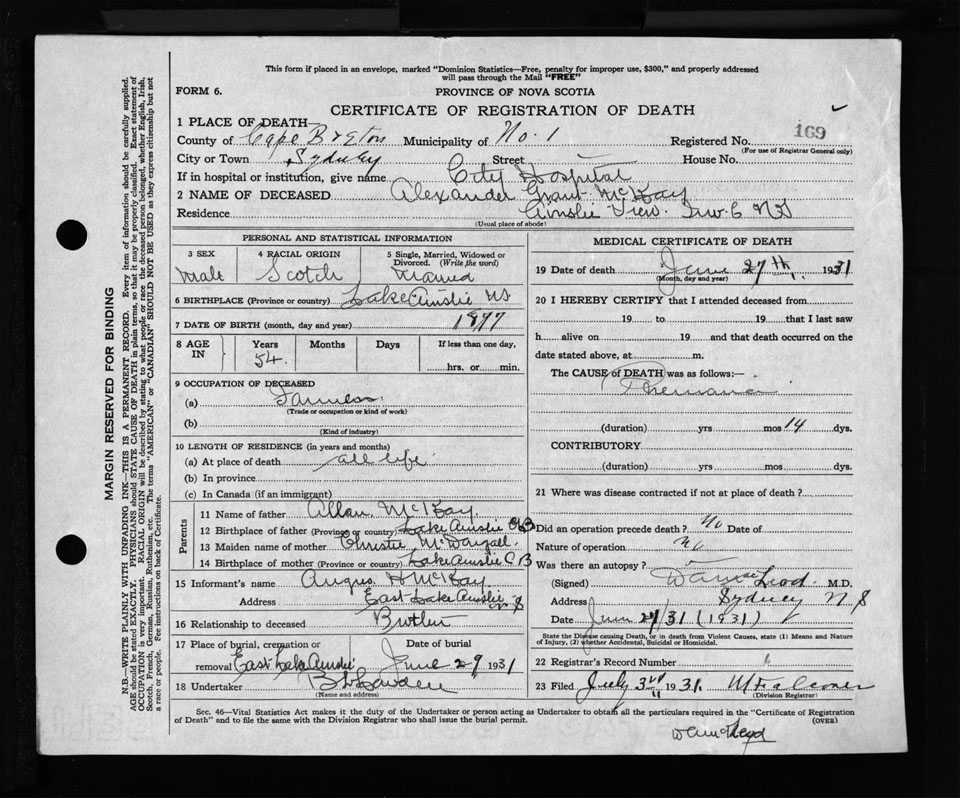 This form if placed in an envelope, marked "Dominion Statistics—Free, penalty for improper use, $300," and properly addressed
will pass through the Mail "FREE"
FORM 6. PROVINCE OF NOVA SCOTIA
CERTIFICATE OF REGISTRATION OF DEATH
1 PLACE OF DEATH
County of Cape Breton Municipality of No. 1 Registered No. 169
(For use of Registrar General only)
City or Town Sydney Street House No.
If in hospital or institution, give name City Hospital
2 NAME OF DECEASED Alexander Grant McKay
Residence Ainslie View. Inv. C NS
(Usual place of abode)
PERSONAL AND STATISTICAL INFORMATION
3 SEX 4 RACIAL ORIGIN 5 Single, Married, Widowed or
Divorced. (Write the word)
Male Scotch Married
6 BIRTHPLACE (Province or country) Lake Ainslie NS
7 DATE OF BIRTH (month, day and year) 1877
8 AGE IN Years Months Days If less than one day,
54. hrs. or min.
9 OCCUPATION OF DECEASED
(a) Farmer
(Trade or occupation or kind of work)
(b)
(Kind of industry)
10 LENGTH OF RESIDENCE (in years and months)
(a) At place of death all life
(b) In province
(c) In Canada (if an immigrant)
Parents
11 Name of father Allan McKay
12 Birthplace of father (Province or country) Lake Ainslie CB
13 Maiden name of mother Christie McDougall
14 Birthplace of mother (Province or country) Lake Ainslie C B
15 Informant's name Angus H McKay
Address East Lake Ainslie N S
16 Relationship to deceased Brother
17 Place of burial, cremation or Date of burial
removal East Lake Ainslie June 29 1931
18 Undertaker
(Name and address)
MEDICAL CERTIFICATE OF DEATH
19 Date of death June 27th, 1931
(Month, day and year)
20 I HEREBY CERTIFY that I attended deceased from
19 to 19 that I last saw
h alive on 19 and that death occurred on the
date stated above, at m.
The CAUSE of DEATH was as follows:—
(duration) yrs mos 14 dys.
CONTRIBUTORY.
(duration) yrs mos dys.
21 Where was disease contracted if not at place of death?
Did an operation precede death? No Date of
Nature of operation no
Was there an autopsy?
(Signed) MacLeod M.D.
Address Sydney N S
Date June 27/31 (1931)
State the Disease causing Death, or in death from Violent Causes, state (1) Means and Nature
of Injury, (2) whether Accidental, Suicidal or Homicidal.
22 Registrar's Record Number
23 Filed July 3rd 1931. M Falconer
(Division Registrar)
Sec. 46—Vital Statistics Act makes it the duty of the Undertaker or person acting as Undertaker to obtain all the particulars required in the "Certificate of Registration
of Death" and to file the same with the Division Registrar who shall issue the burial permit. (OVER)
MARGIN RESERVED FOR BINDING
N.B—WRITE PLAINLY WITH UNFADING INK—THIS IS A PERMANENT RECORD. Every item of information should be carefully supplied.
AGE should be stated EXACTLY. PHYSICIANS should STATE CAUSE OF DEATH in plain terms, so that it may be properly classified. Exact statement of
OCCUPATION is very important. RACIAL ORIGIN will be described by stating to what people or race the deceased person belonged, whether English, Irish,
Scotch, French, German, Russian, Ruthenian, etc. The terms "AMERICAN" or "CANADIAN" SHOULD NOT BE USED as they express citizenship but not
a race or people. See instructions on back of Certificate.